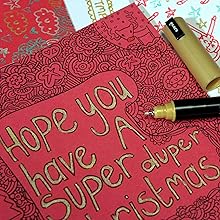 Hope you
have A
super duper
christmas